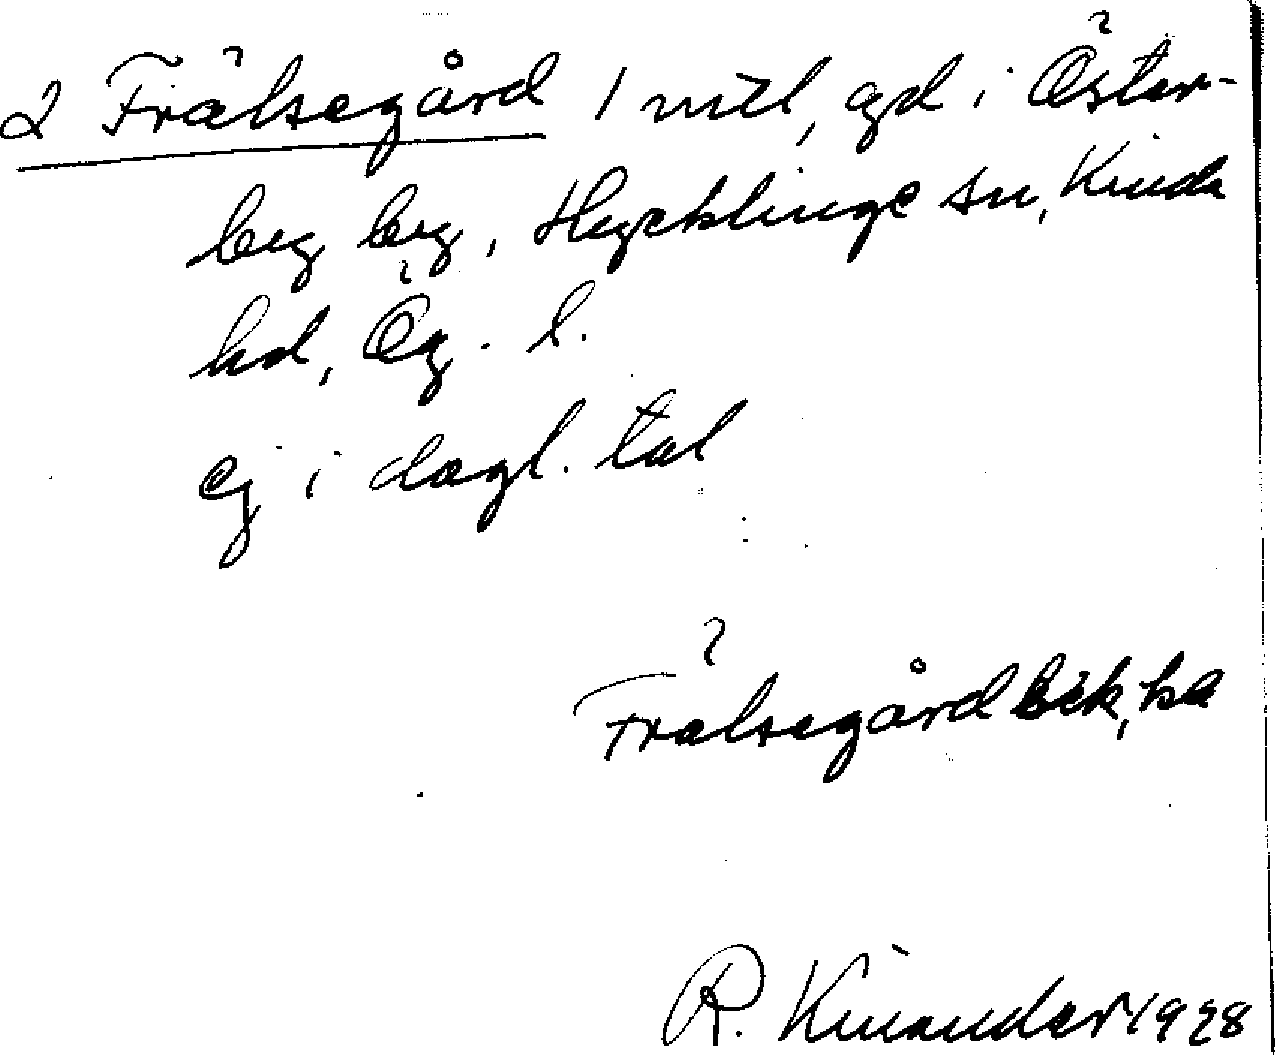 2 Frälsegård 1 mtl, gd i Öster-
by by, Hycklinge sn, Kinda
hd, Ög. l.
ej i dagl. tal
Frälsegård bek, ka
R. Kinander 1928